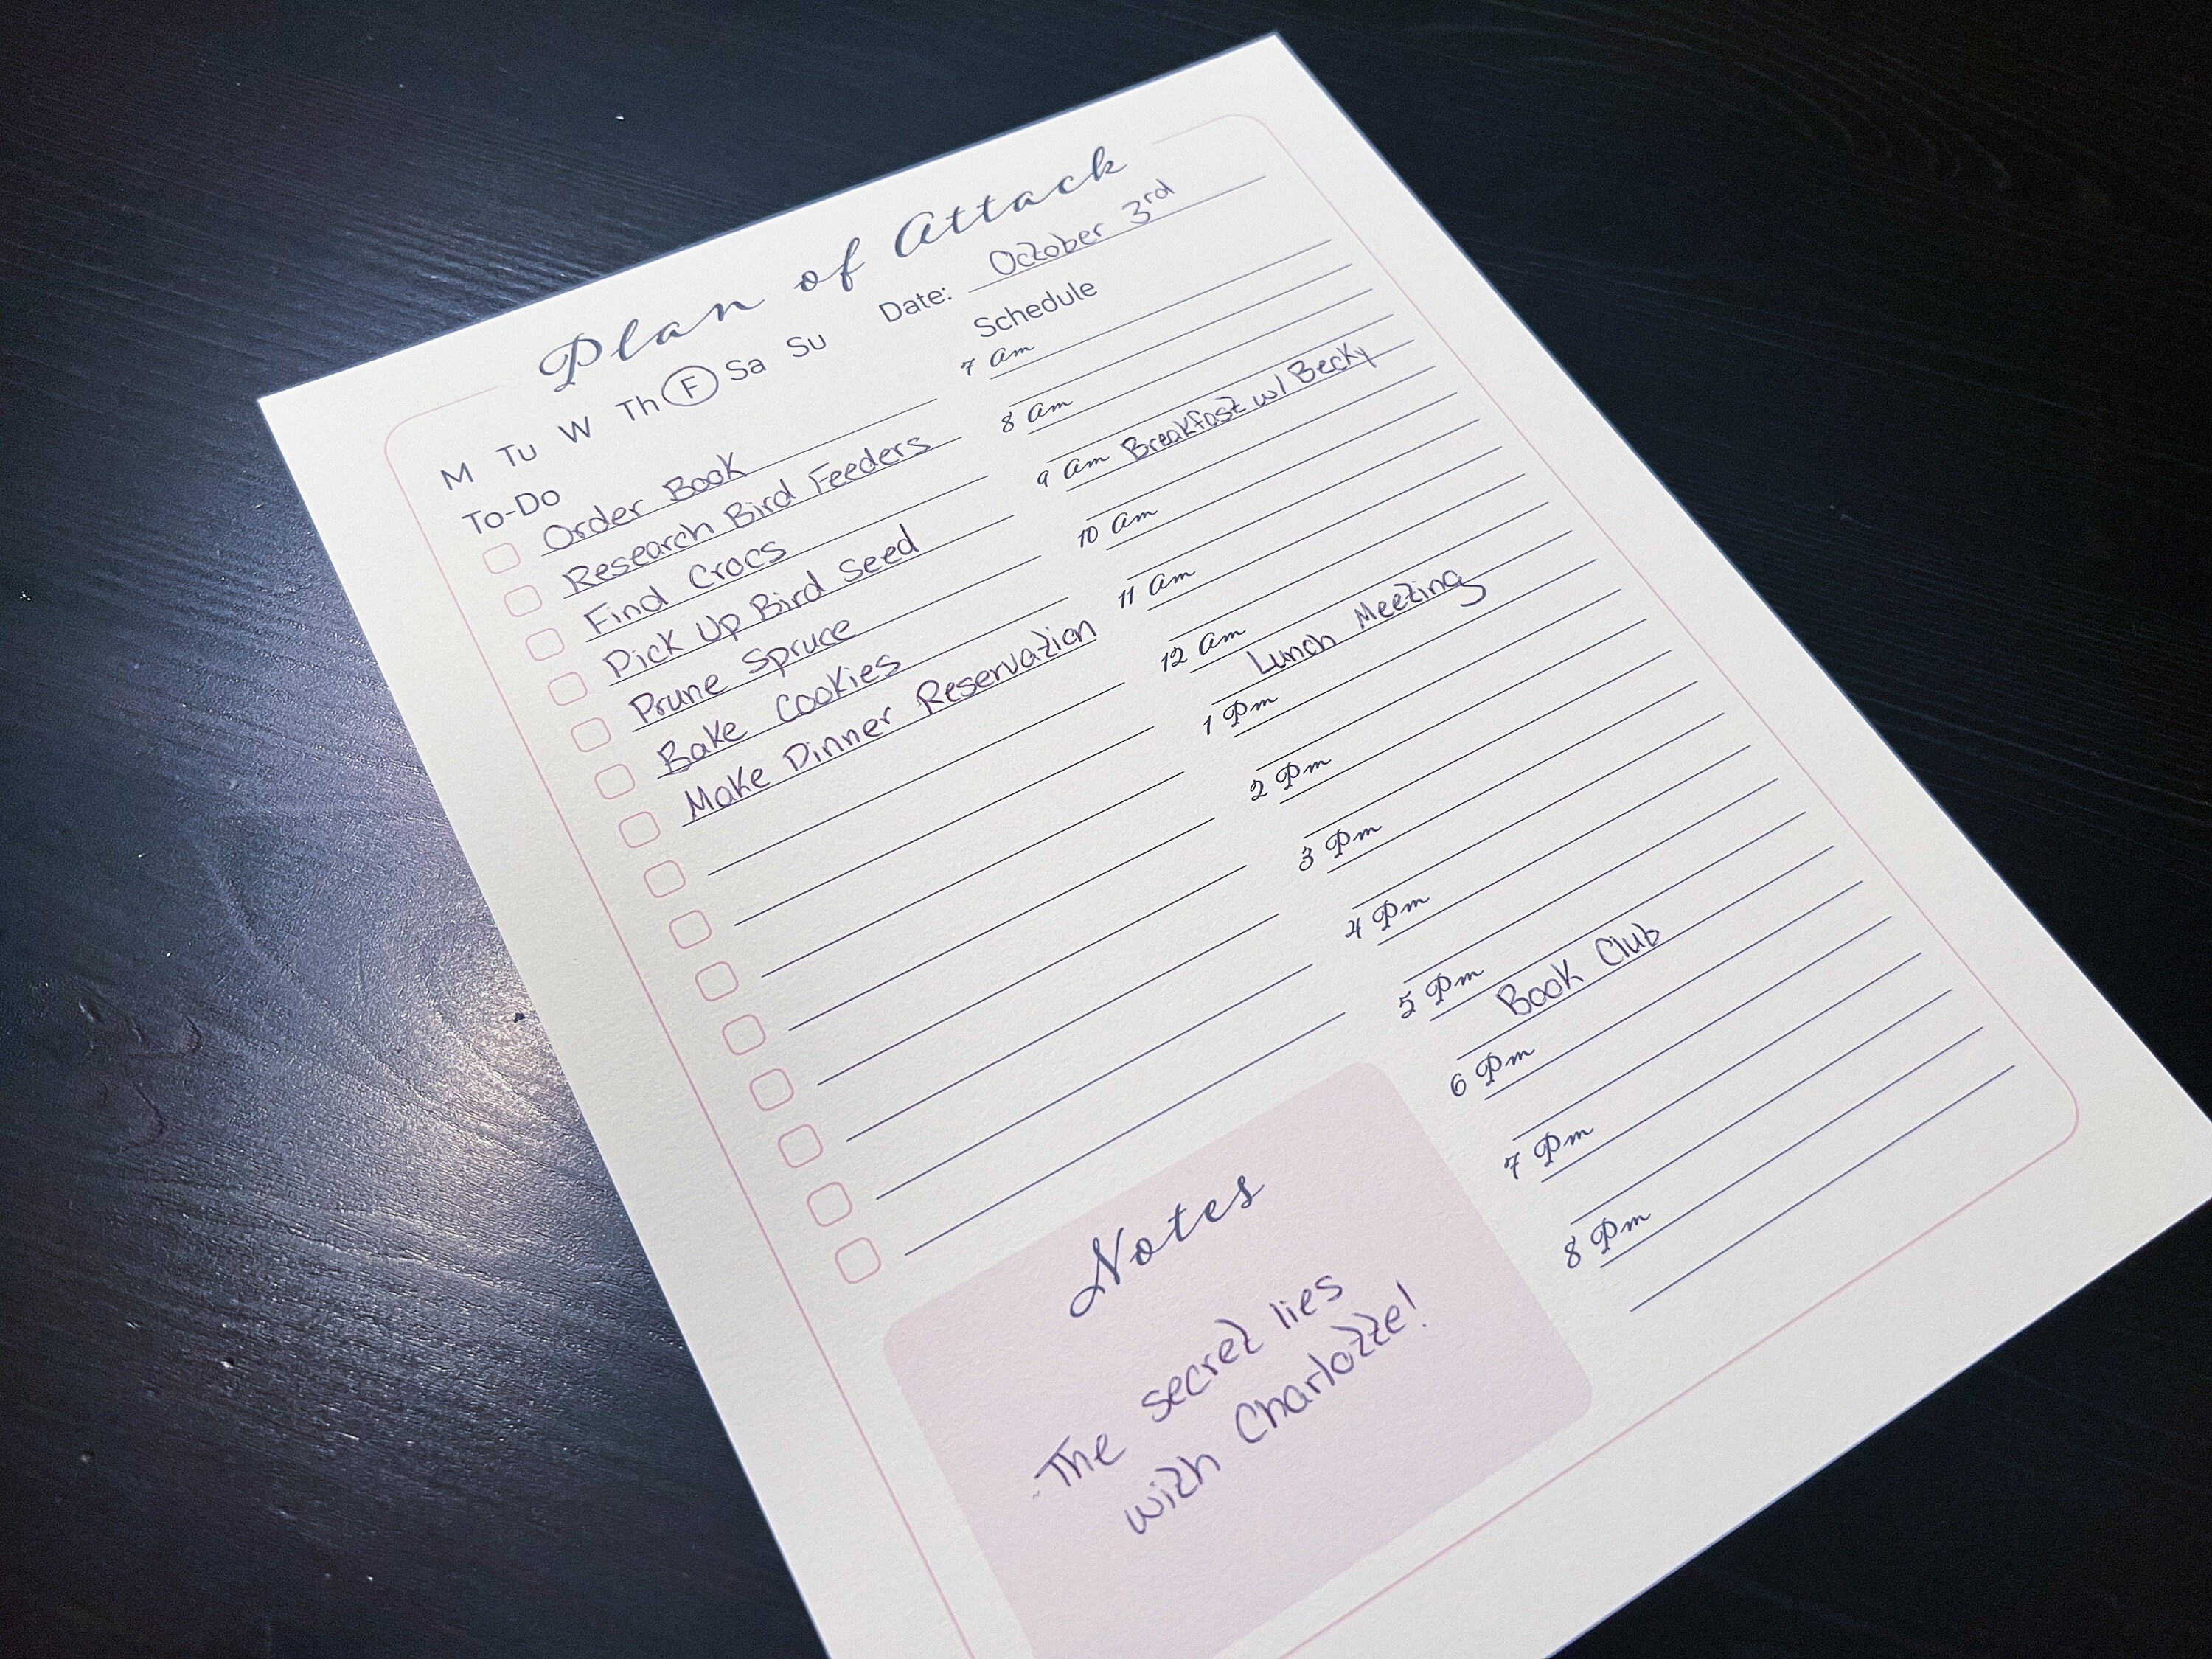 Plan of Attack
M Tu W Th F Sa Su
Date: October 3rd
To-Do
Order Book
Research Bird Feeders
Find Crocs
Pick Up Bird Seed
Prune Spruce
Bake Cookies
Make Dinner Reservation
Schedule
7 am
8 am
9 am Breakfast w/ Becky
10 am
11 am
12 am
Lunch Meeting
1 Pm
2 Pm
3 Pm
4 Pm
5 Pm
Book Club
6 Pm
7 Pm
8 Pm
Notes
The secret lies
with Charlotte!